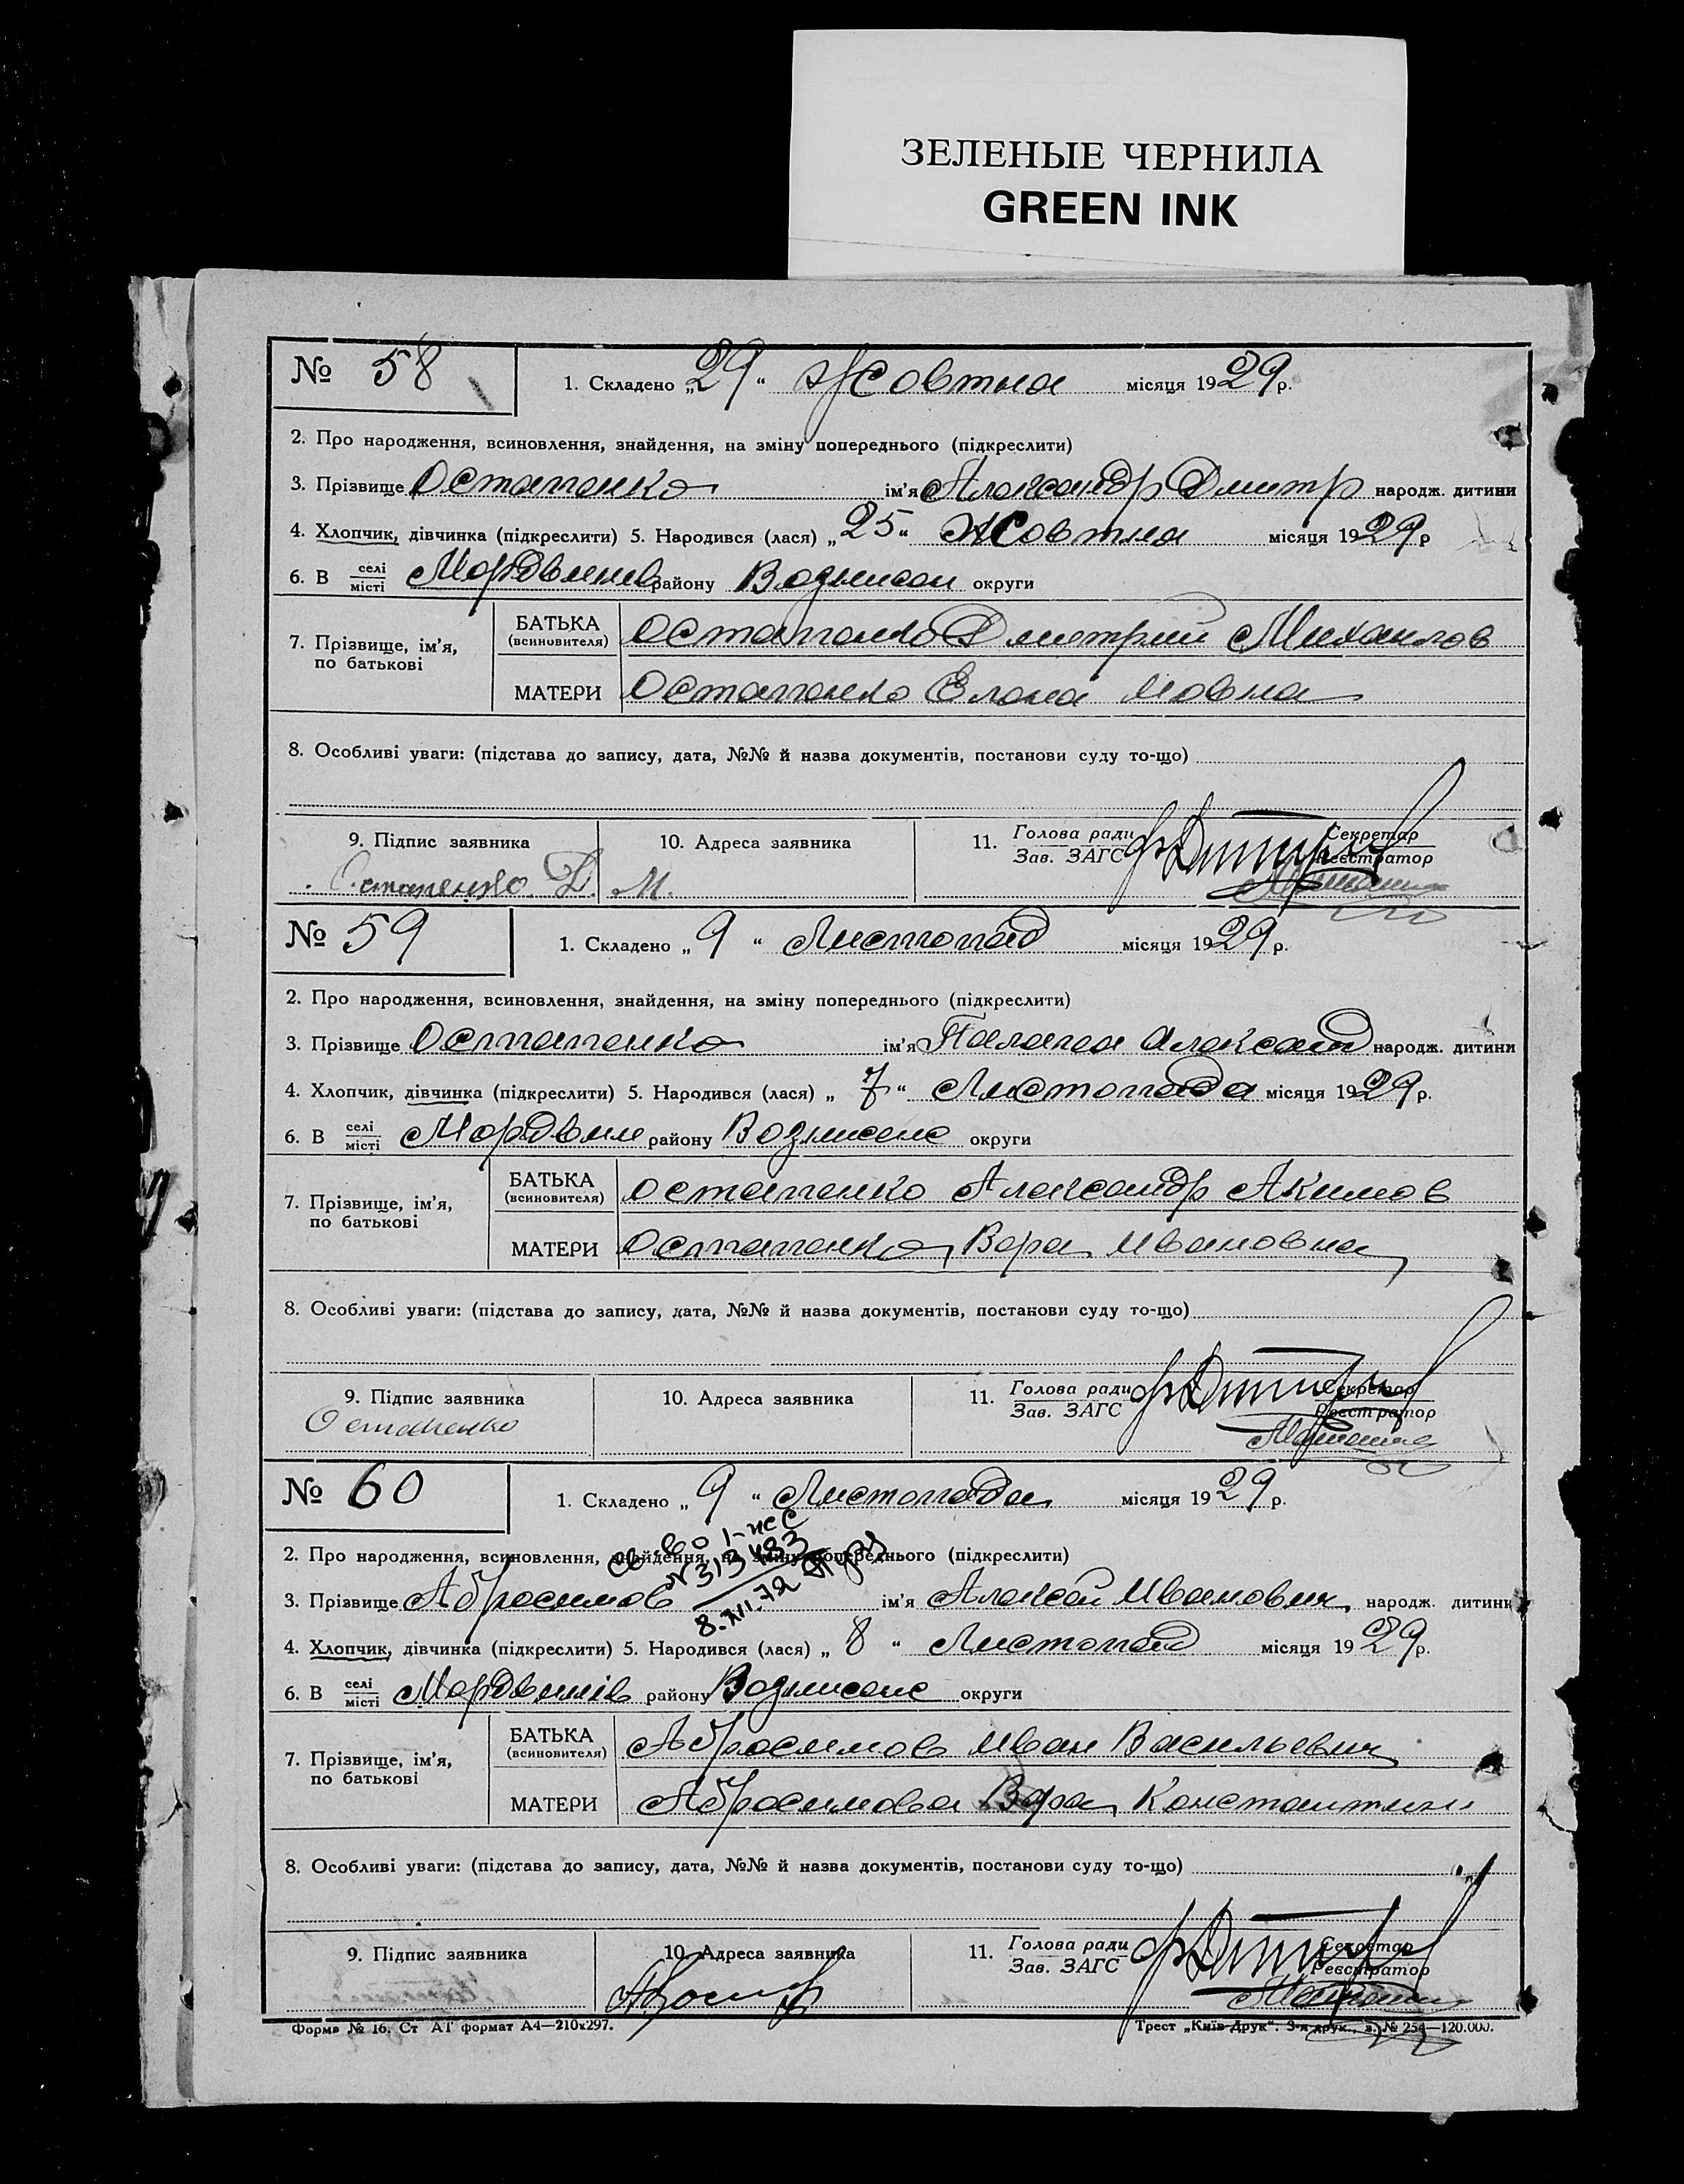 ЗЕЛЕНЫЕ ЧЕРНИЛА
GREEN INK
№ 58
1. Складено „29“ Жовтна місяця 1929 р.
2. Про народження, всиновлення, знайдення, на зміну попереднього (підкреслити)
3. Прізвище Остапенко ім'я Александр Дмитр народж. дитини
4. Хлопчик, дівчинка (підкреслити) 5. Народився (лася) „25“ Жовтна місяця 1929 р
6. В селі/місті Мордвинів району Вознисен округи
7. Прізвище, ім'я, по батькові
БАТЬКА (всиновителя) Остапенко Дмитрий Михайлов
МАТЕРИ Остапенко Елена
8. Особливі уваги: (підстава до запису, дата, №№ й назва документів, постанови суду то-що)
9. Підпис заявника 10. Адреса заявника 11. Голова ради/Зав. ЗАГС Секретар/Реєстратор
Остапенко Д. М.
№ 59
1. Складено „9“ Листопад місяця 1929 р.
2. Про народження, всиновлення, знайдення, на зміну попереднього (підкреслити)
3. Прізвище Остапенко ім'я Палагея Александ народж. дитини
4. Хлопчик, дівчинка (підкреслити) 5. Народився (лася) „7“ Листопада місяця 1929 р.
6. В селі/місті Мордвин району Вознисенс округи
7. Прізвище, ім'я, по батькові
БАТЬКА (всиновителя) Остапенко Александр Акимов
МАТЕРИ Остапенко Вера Ивановна
8. Особливі уваги: (підстава до запису, дата, №№ й назва документів, постанови суду то-що)
9. Підпис заявника 10. Адреса заявника 11. Голова ради/Зав. ЗАГС Секретар/Реєстратор
Остапенко
№ 60
1. Складено „9“ Листопада місяця 1929 р.
св-во I-
2. Про народження, всиновлення, знайдення, на зміну попереднього (підкреслити)
N 313483
3. Прізвище Абросимов ім'я Алексей Иванович народж. дитини
8.XII.72
4. Хлопчик, дівчинка (підкреслити) 5. Народився (лася) „8“ Листопад місяця 1929 р.
6. В селі/місті Мордвинів району Вознисенс округи
7. Прізвище, ім'я, по батькові
БАТЬКА (всиновителя) Абросимов Иван Васильевич
МАТЕРИ Абросимова Вера Константин
8. Особливі уваги: (підстава до запису, дата, №№ й назва документів, постанови суду то-що)
9. Підпис заявника 10. Адреса заявника 11. Голова ради/Зав. ЗАГС Секретар/Реєстратор
Форма № 16. Ст АТ формат А4—210х297.
Трест „Київ-Друк“. 3-я друк., з. № 254—120.000.